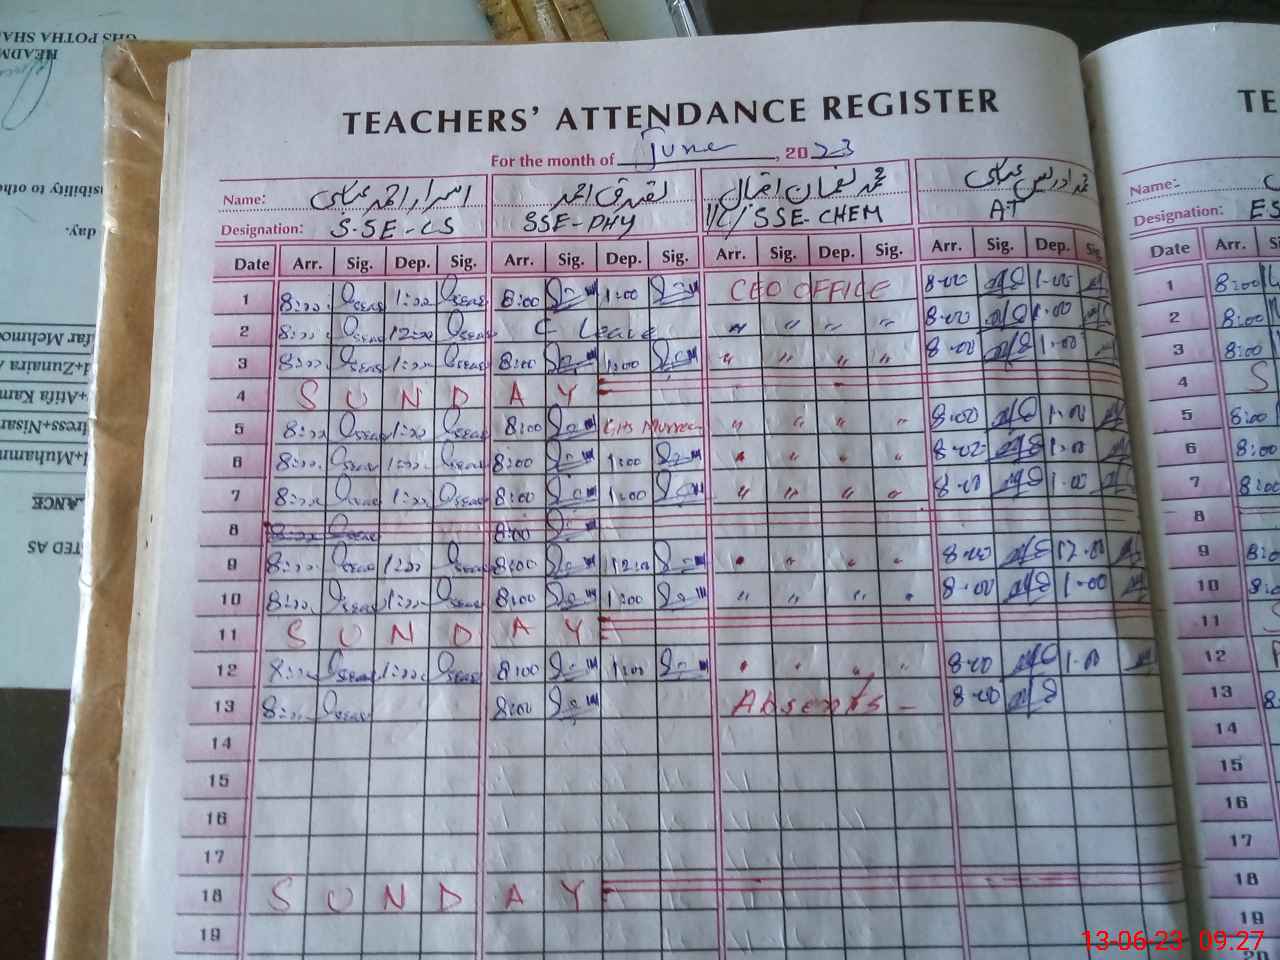 TEACHERS' ATTENDANCE REGISTER
For the month of June, 2023
Name: اسرار احمد عباسی تصدق احمد محمد لقمان اقبال محمد ادریس عباسی
Designation: S.SE-CS SSE-PHY I/C/SSE-CHEM AT
Date Arr. Sig. Dep. Sig. Arr. Sig. Dep. Sig. Arr. Sig. Dep. Sig. Arr. Sig. Dep. Sig.
1 8:00 1:00 8:00 1:00 CEO OFFICE 8-00 1-00
2 8:00 12:00 C- Leave " " " " 8-00 1-00
3 8:00 1:00 8:00 1:00 " " " " 8-00 1-00
4 S U N D A Y
5 8:00 1:00 8:00 GHS " " " " 8-00 1-00
6 8:00 1:00 8:00 1:00 " " " " 8-00 1-00
7 8:00 1:00 8:00 1:00 " " " " 8-00 1-00
8 8:00 8:00
9 8:00 1:00 8:00 12:00 " " " " 8-00 12-00
10 8:00 1:00 8:00 1:00 " " " " 8-00 1-00
11 S U N D A Y
12 8:00 1:00 8:00 1:00 " " " " 8-00 1-00
13 8:00 8:00 Absents - 8-00
14
15
16
17
18 S U N D A Y
19
TE
Name:
Designation: ES
Date Arr.
1 8:00
2 8:00
3 8:00
4 S
5 8:00
6 8:00
7 8:00
8
9
10
11 S
12
13
14
15
16
17
18
19
20
GHS POTHA SHA
HEADM
sibility to othe
day.
far Mehmoo
d+Zunaira
+Atifa Kam
dress+Nisar
d+Muhamm
LANCE
TED AS
13-06-23 09:27